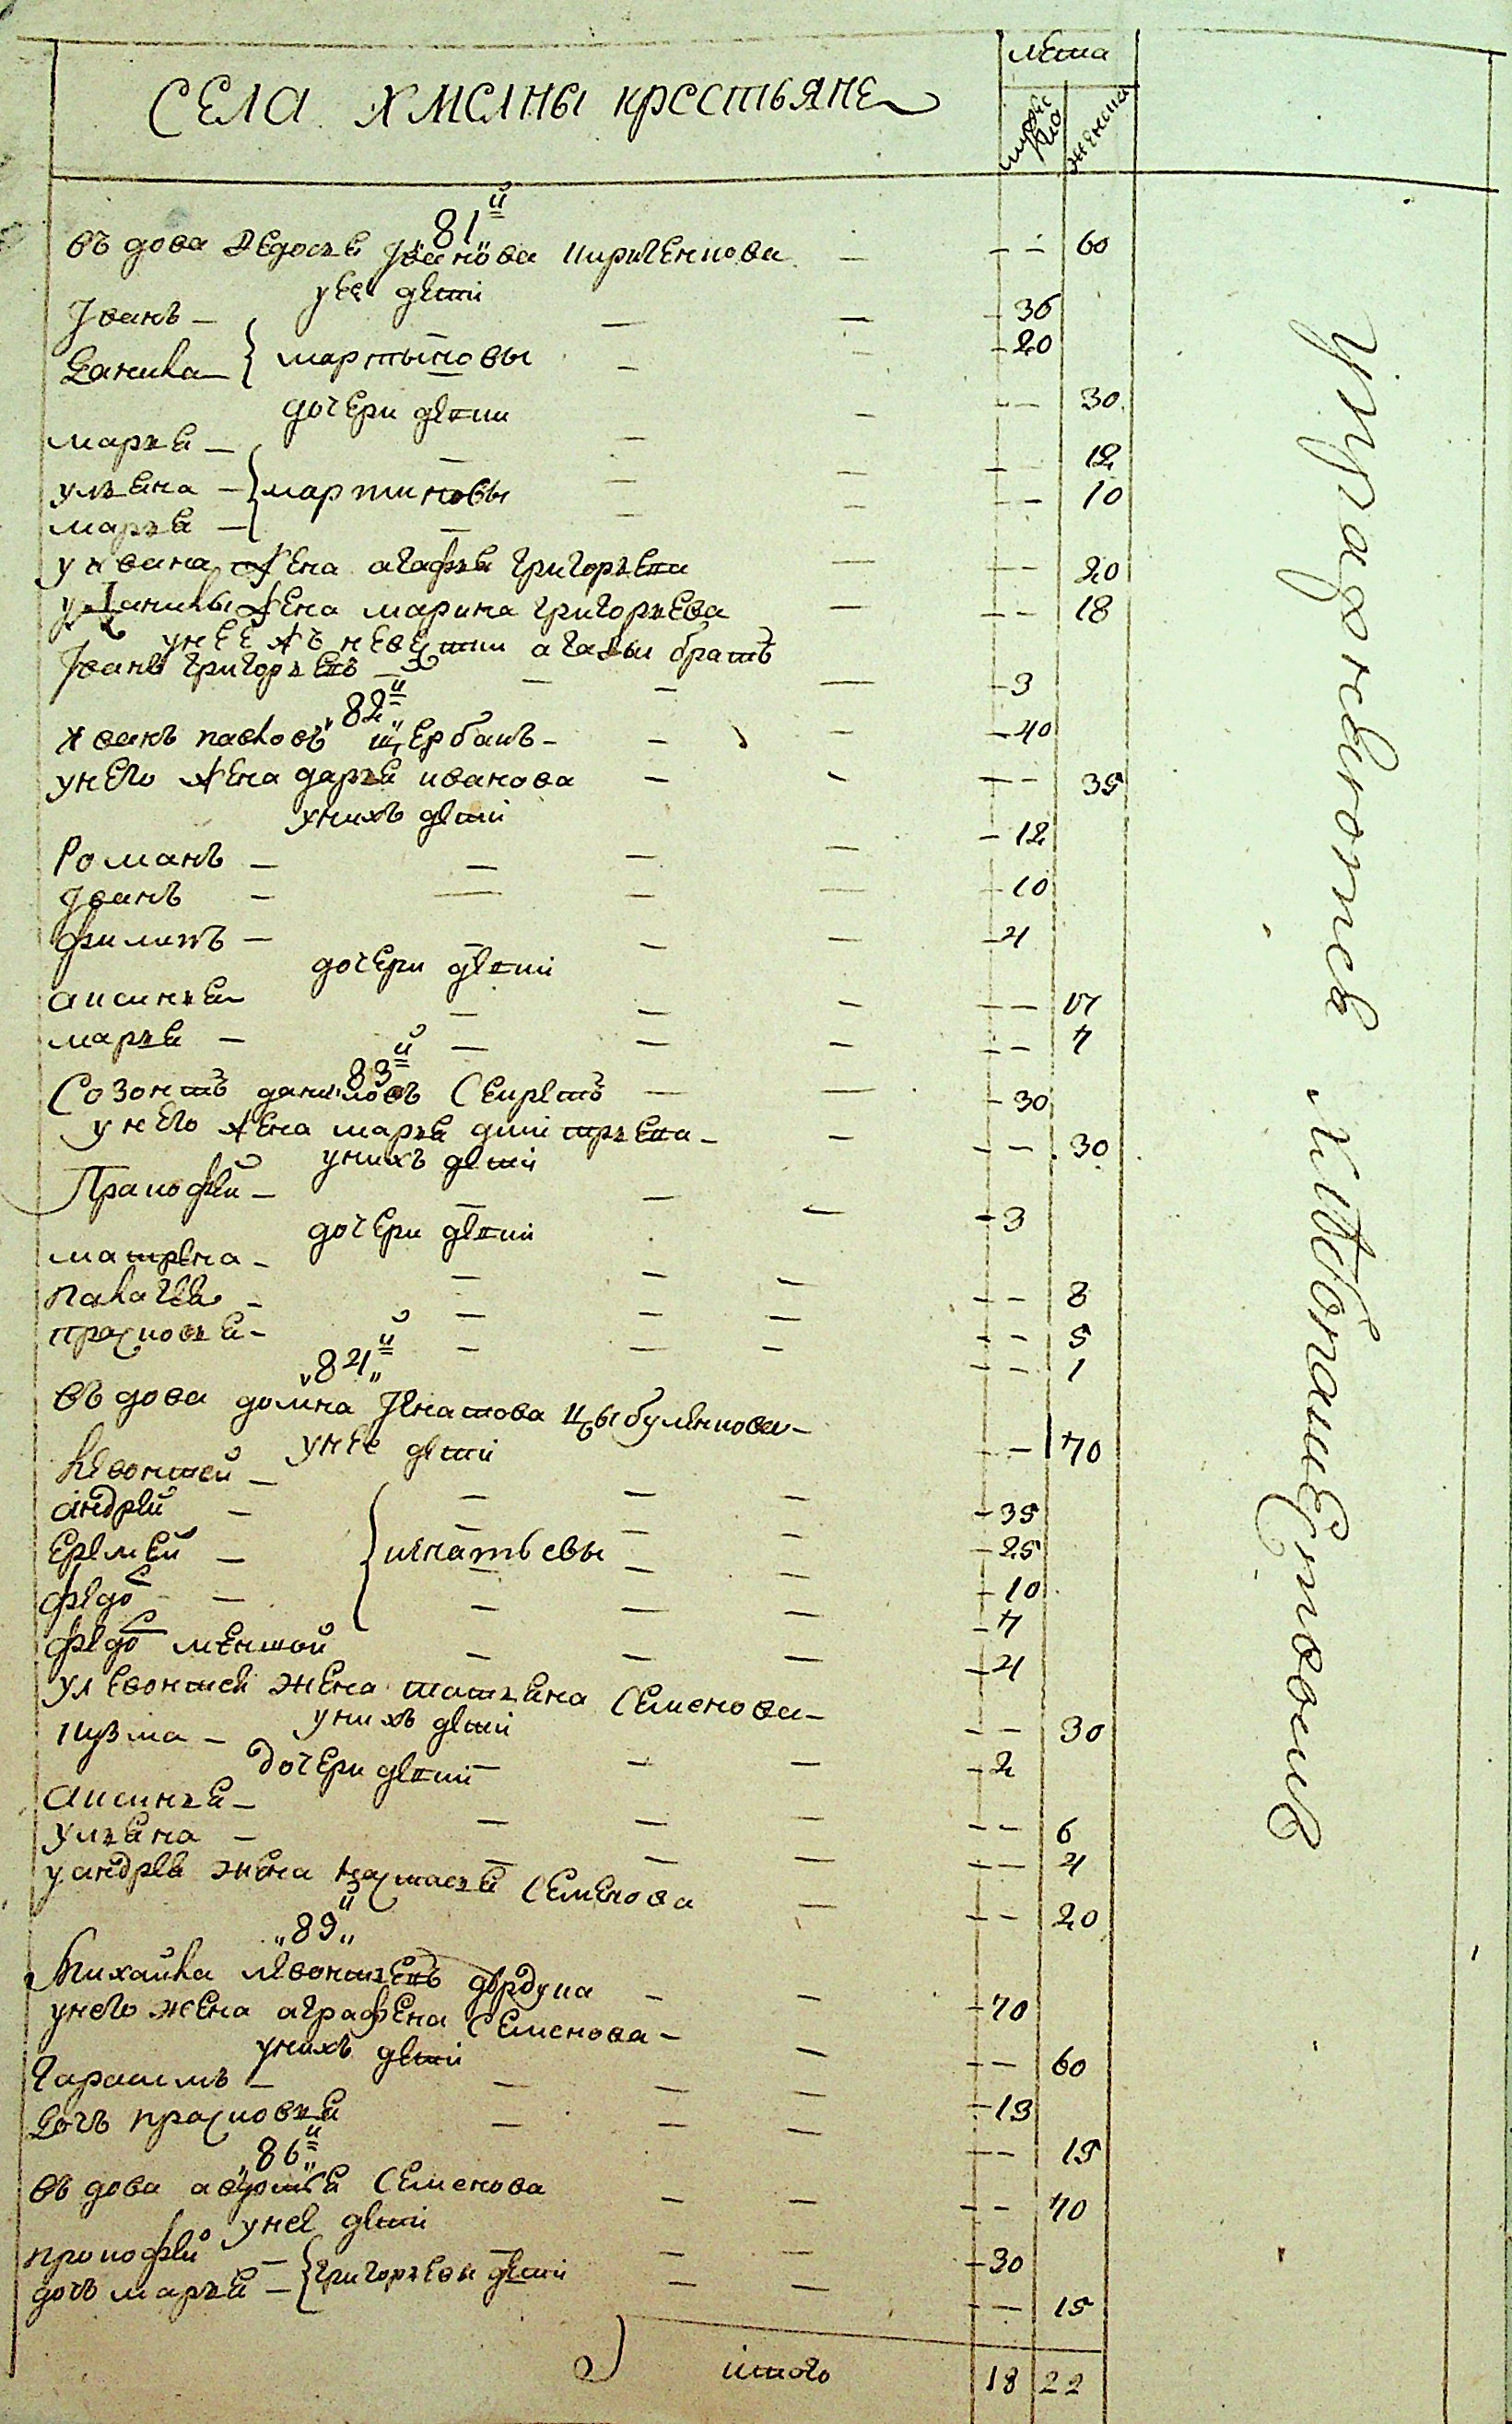 Села Хмелны крестьяне
лета
мужска
женска
81й
въдова Федосъя Iванова Кириченкова - - - 60
у ее дети
Iванъ - 36
Данила - Мартыновы - 20
дочери дети
маръя - - - 30
улъяна - мартиновы - - 12
маръя - - - 10
у Ивана жена агафъя григоръева - - 20
у Данилы жена марина григоръева - - 18
у нее жъ невестки агафьи братъ
Iванъ григоръевъ - 3
82й
Иванъ павловъ щербакъ - 40
у него жена даръя иванова - - 35
у нихъ дети
Романъ - 12
Iванъ - 10
филипъ - 4
дочери дети
аксинъя - - 17
маръя - - 7
83й
Созонтъ даниловъ Секретъ - 30
у него жена маръя дмитръева - - 30
у нихъ дети
Пракофей - 3
дочери дети
матрена - - 8
палагея - - 5
прасковъя - - 1
84й
въдова домна Iгнатова Цыбуленкова - - 70
у нее дети
левонтей - 35
андрей - 25
еремей - игнатьевы - 10
федо - 7
федо меншой - 4
у левонтея жена татъяна Семенова - - 30
у нихъ дети
кузма - 2
дочери дети
аксинъя - - 6
улъяна - - 4
у андрея жена настасъя Семенова - - 20
85й
Михайла левонтъевъ дердука - 70
у него жена аграфена Семенова - - 60
у нихъ дети
гарасимъ - 13
дочъ прасковъя - - 15
86й
въдова авдотъя Семенова - - 70
у нее дети
прокофей - григоръевы дети - 30
дочъ маръя - - 15
итого 18 22